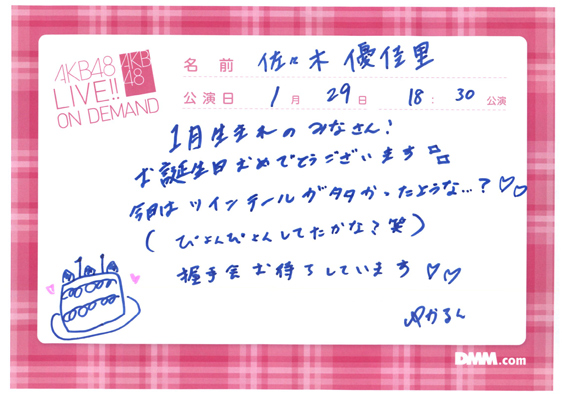 AKB48
LIVE!!
ON DEMAND
AKB
48
名前 佐々木 優佳里
公演日 1月 29日 18:30 公演
1月生まれのみなさん!
お誕生日おめでとうございます
今日はツインテールが多かったような…?♡♡
(ぴょんぴょんしてたかな?笑)
握手会お待ちしています♡♡
ゆかるん
DMM.com